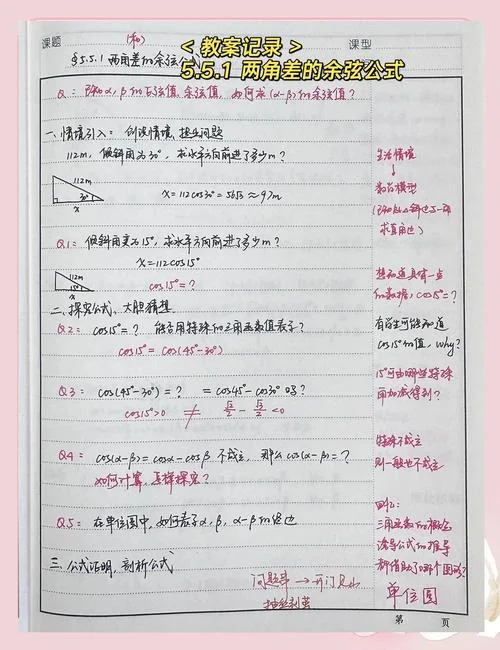 课题
(和)
课型
< 教案记录 >
§5.5.1 两角差的余弦公式
5.5.1 两角差的余弦公式
Q: 已知α, β的正弦值、余弦值, 如何求(α-β)的余弦值?
一、情境引入: 创设情境, 提出问题
112m, 倾斜角为30°, 求水平方向前进了多少m?
112m
30°
x
x=112cos30°=56√3≈97m
Q1: 倾斜角度为15°, 求水平方向前进了多少m?
x=112cos15°
112m
15°
x
cos15°=?
二、探究公式、大胆猜想
Q2: cos15°=? 能否用特殊的三角函数值表示?
cos15°=cos(45°-30°)
Q3: cos(45°-30°)=? =cos45°-cos30°吗?
cos15°>0 ≠ √2/2 - √3/2 <0
Q4: cos(α-β)=cosα-cosβ 不成立, 那么cos(α-β)=?
如何计算, 怎样探究?
Q5: 在单位圆中, 如何表示α, β, α-β的终边
三、公式证明, 剖析公式
问题串→开门见山
抽丝剥茧
生活情境
↓
数学模型
求直角边)
想知道具体一点
的数据, cos15°=?
有学生可能知道
cos15°的值, why?
15°可由哪些特殊
角加减得到?
特殊不成立
则一般也不成立
回忆:
三角函数的概念
诱导公式的推导
都借助了哪个图形?
单位圆
第 页